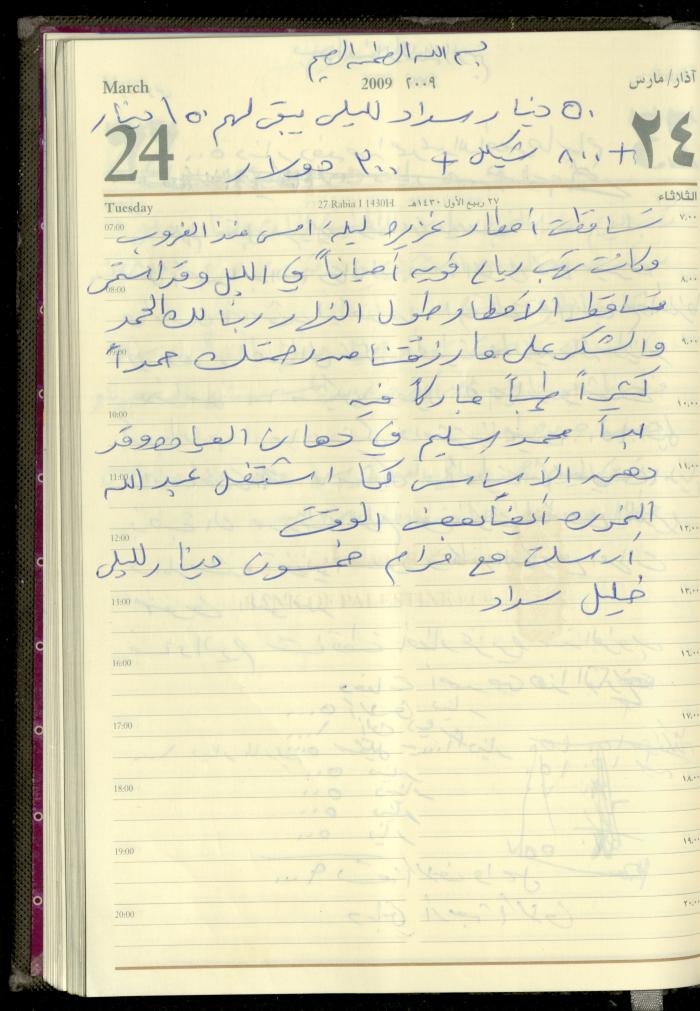 بسم الله الرحمن الرحيم
March 2009 ٢٠٠٩ آذار/مارس
٥٠ دينار سداد لليلى يبقى لهم ١٥٠ دينار
24 + ٨٠٠ شيكل + ٣٠٠ دولار ٢٤
Tuesday 27 Rabia I 1430H ٢٧ ربيع الأول ١٤٣٠هـ الثلاثاء
07:00 تساقطت أمطار غزيره ليلة امس منذ الغروب ٧,٠٠
وكانت تهب رياح قويه أحياناً في الليل وقد استمر ٨,٠٠
08:00 تساقط الأمطار طول النهار ربنا لك الحمد
09:00 والشكر على ما رزقتنا من رحمتك حمداً ٩,٠٠
كثيراً طيباً مباركاً فيه ١٠,٠٠
10:00 بدأ محمد سليم في دهان وقد
11:00 دهن الأساس كما اشتغل عبد الله ١١,٠٠
أيضاً بعض الوقت ١٢,٠٠
12:00 أرسلت مع مرام خمسون دينار لليلى
13:00 خليل سداد ١٣,٠٠
16:00 ١٦,٠٠
17:00 ١٧,٠٠
18:00 ١٨,٠٠
19:00 ١٩,٠٠
20:00 ٢٠,٠٠